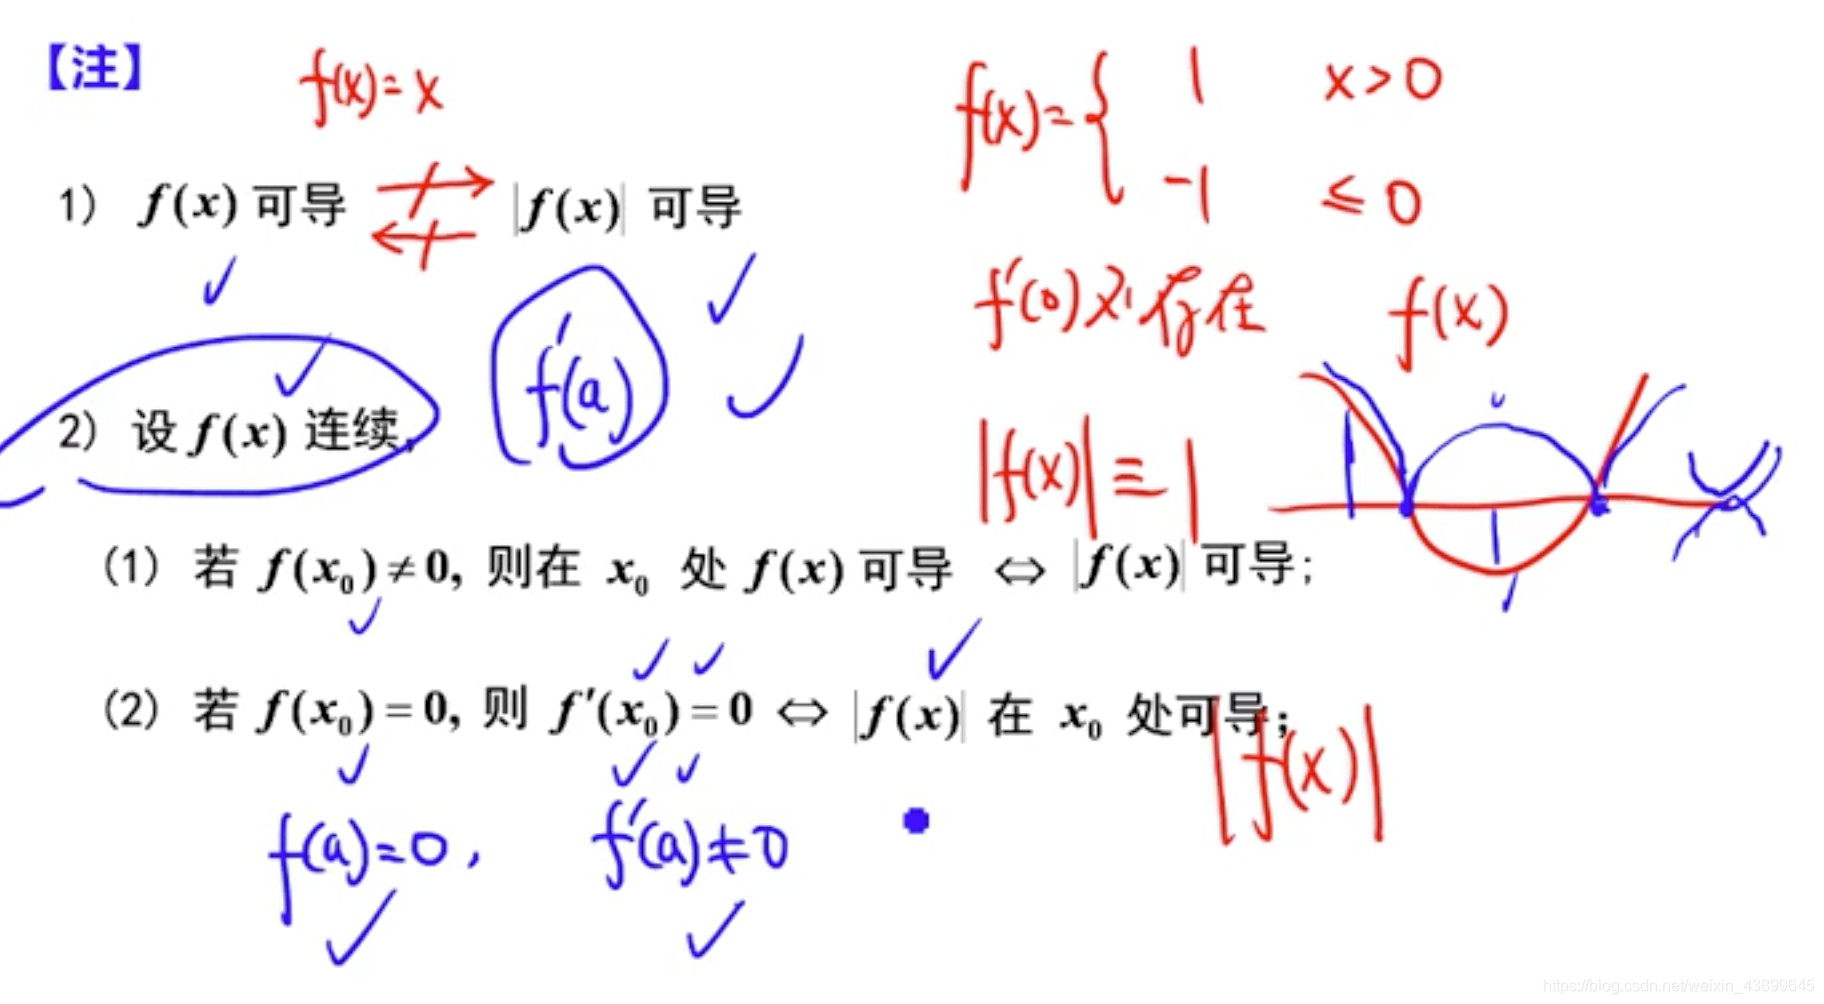 【注】
f(x)=x
f(x)={ 1 x>0
-1 ≤0
1) f(x) 可导 |f(x)| 可导
f'(0)不存在
f(x)
f'(a)
2) 设 f(x) 连续,
|f(x)|≡1
(1) 若 f(x₀)≠0, 则在 x₀ 处 f(x) 可导 ⇔ |f(x)| 可导;
(2) 若 f(x₀)=0, 则 f'(x₀)=0 ⇔ |f(x)| 在 x₀ 处可导;
|f(x)|
f(a)=0, f'(a)≠0
https://blog.csdn.net/weixin_43899645